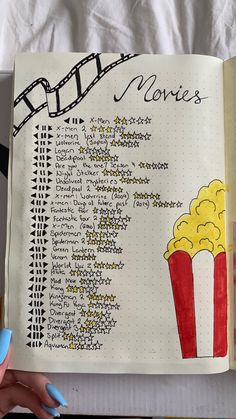 Movies
X-Men
X-men 2
X-men last stand
Wolverine
Logan
Deadpool
Are you the one? Season
Night Stalker
Unsolved mysteries
Deadpool 2
X-men: Wolverine (2009)
X-men: Days of future past (2014)
Fantastic four
Fantastic four 2
X-Men (2000)
Spiderman
Spiderman 2
Spiderman 3
Green Lantern
Venom
World War Z
Alpha
Mad Max
Kong
Kingsman 2
Kung Fu Yoga
Divergent
Divergent 2
Divergent 3
Split
Aquaman